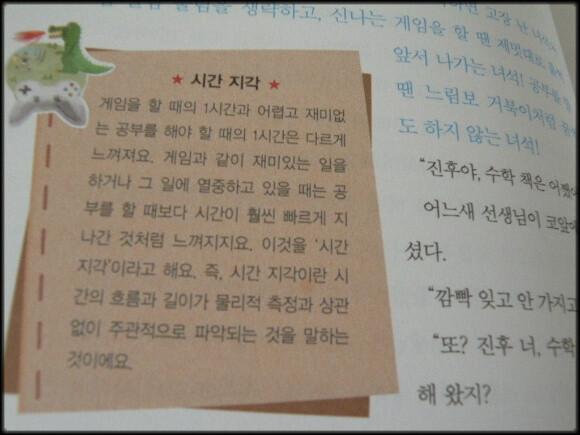 게임을 할 땐 제멋대로
앞서 나가는 녀석! 공부를 할
땐 느림보 거북이처럼
도 하지 않는 녀석!
★ 시간 지각 ★
게임을 할 때의 1시간과 어렵고 재미없
는 공부를 해야 할 때의 1시간은 다르게
느껴져요. 게임과 같이 재미있는 일을
하거나 그 일에 열중하고 있을 때는 공
부를 할 때보다 시간이 훨씬 빠르게 지
나간 것처럼 느껴지지요. 이것을 ‘시간
지각’이라고 해요. 즉, 시간 지각이란 시
간의 흐름과 길이가 물리적 측정과 상관
없이 주관적으로 파악되는 것을 말하는
것이에요.
“진후야, 수학 책은
어느새 선생님이 코앞에
셨다.
“깜빡 잊고 안 가지고
“또? 진후 너, 수학
해 왔지?